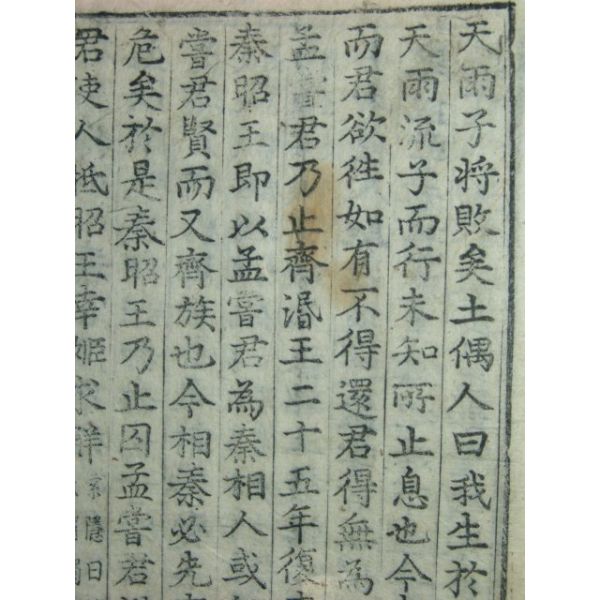 天雨子将敗矣土偶人曰我生於
天雨流子而行未知所止息也今
而君欲徃如有不得還君得無為
孟嘗君乃止齊湣王二十五年復
秦昭王即以孟嘗君為秦相人或
嘗君賢而又齊族也今相秦必先
危矣於是秦昭王乃止囚孟嘗君
君使人抵昭王幸姬求